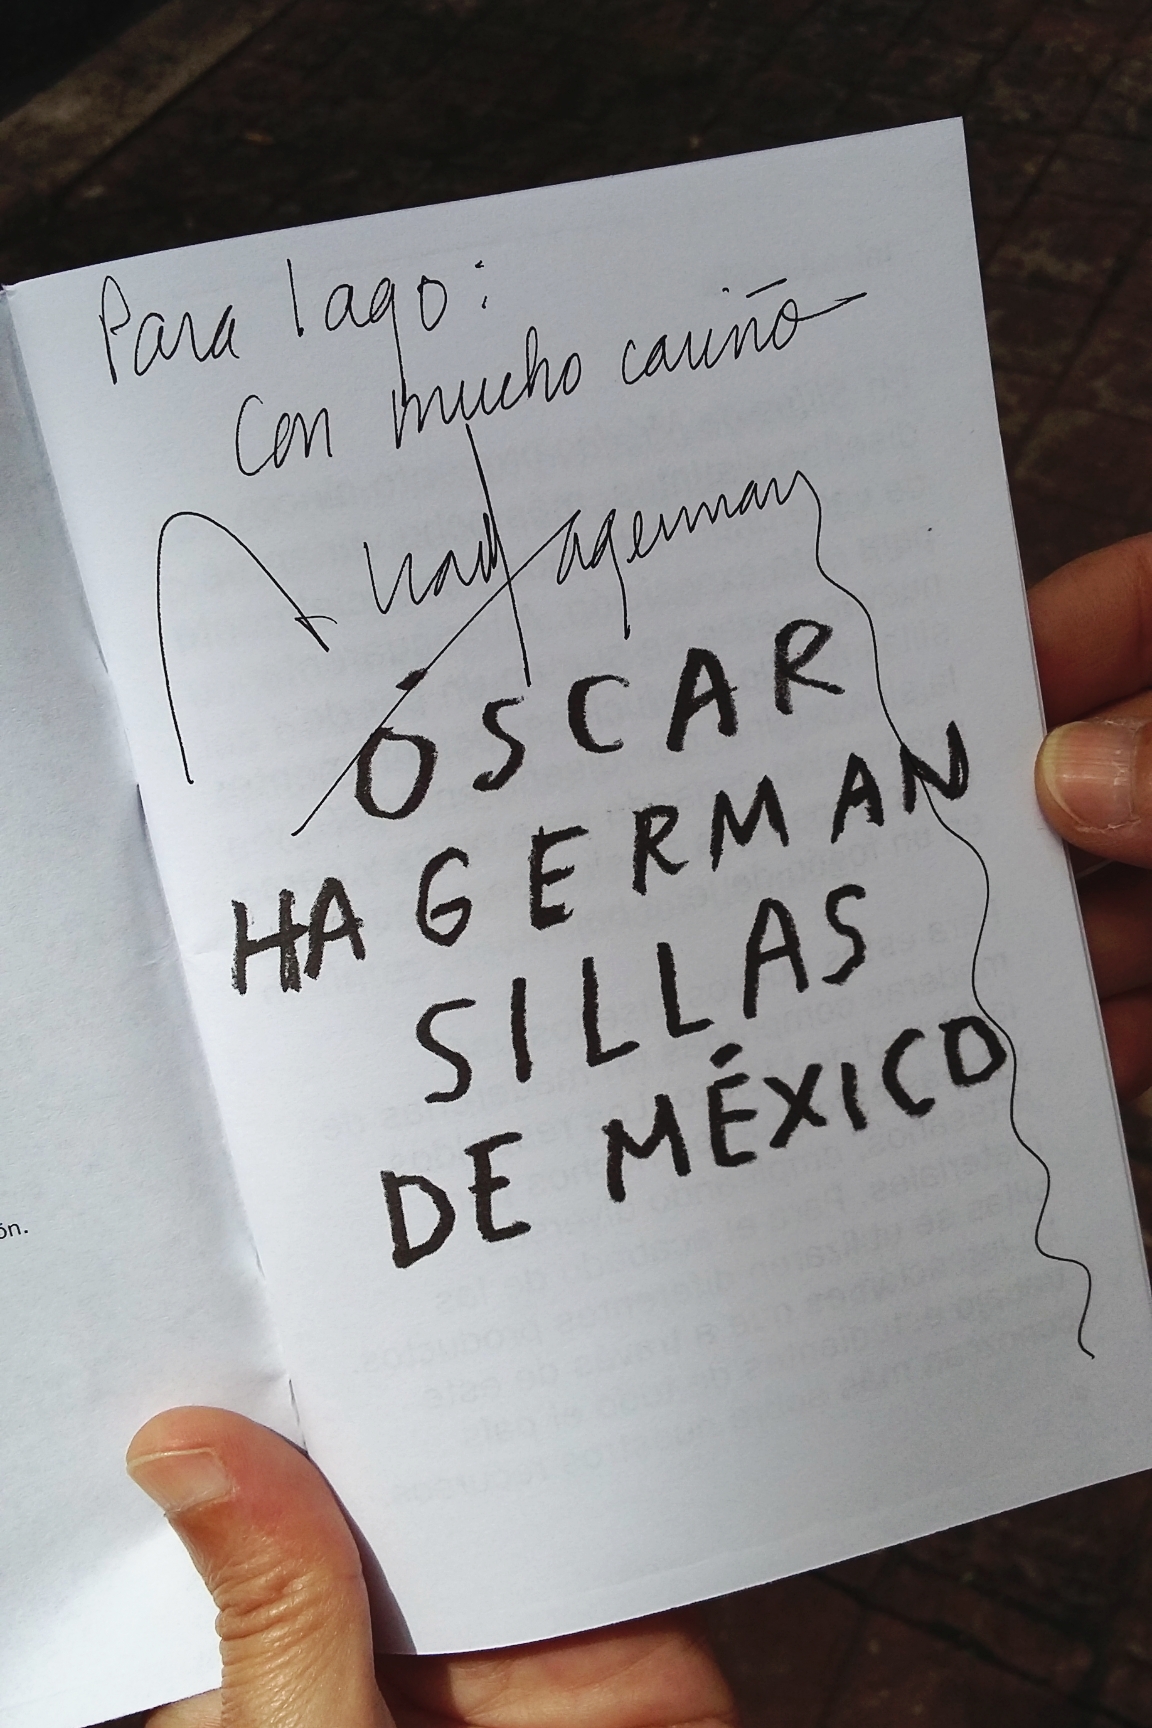 Para lago:
Con mucho cariño
Hagerman
ÓSCAR
HAGERMAN
SILLAS
DE MÉXICO
ón.